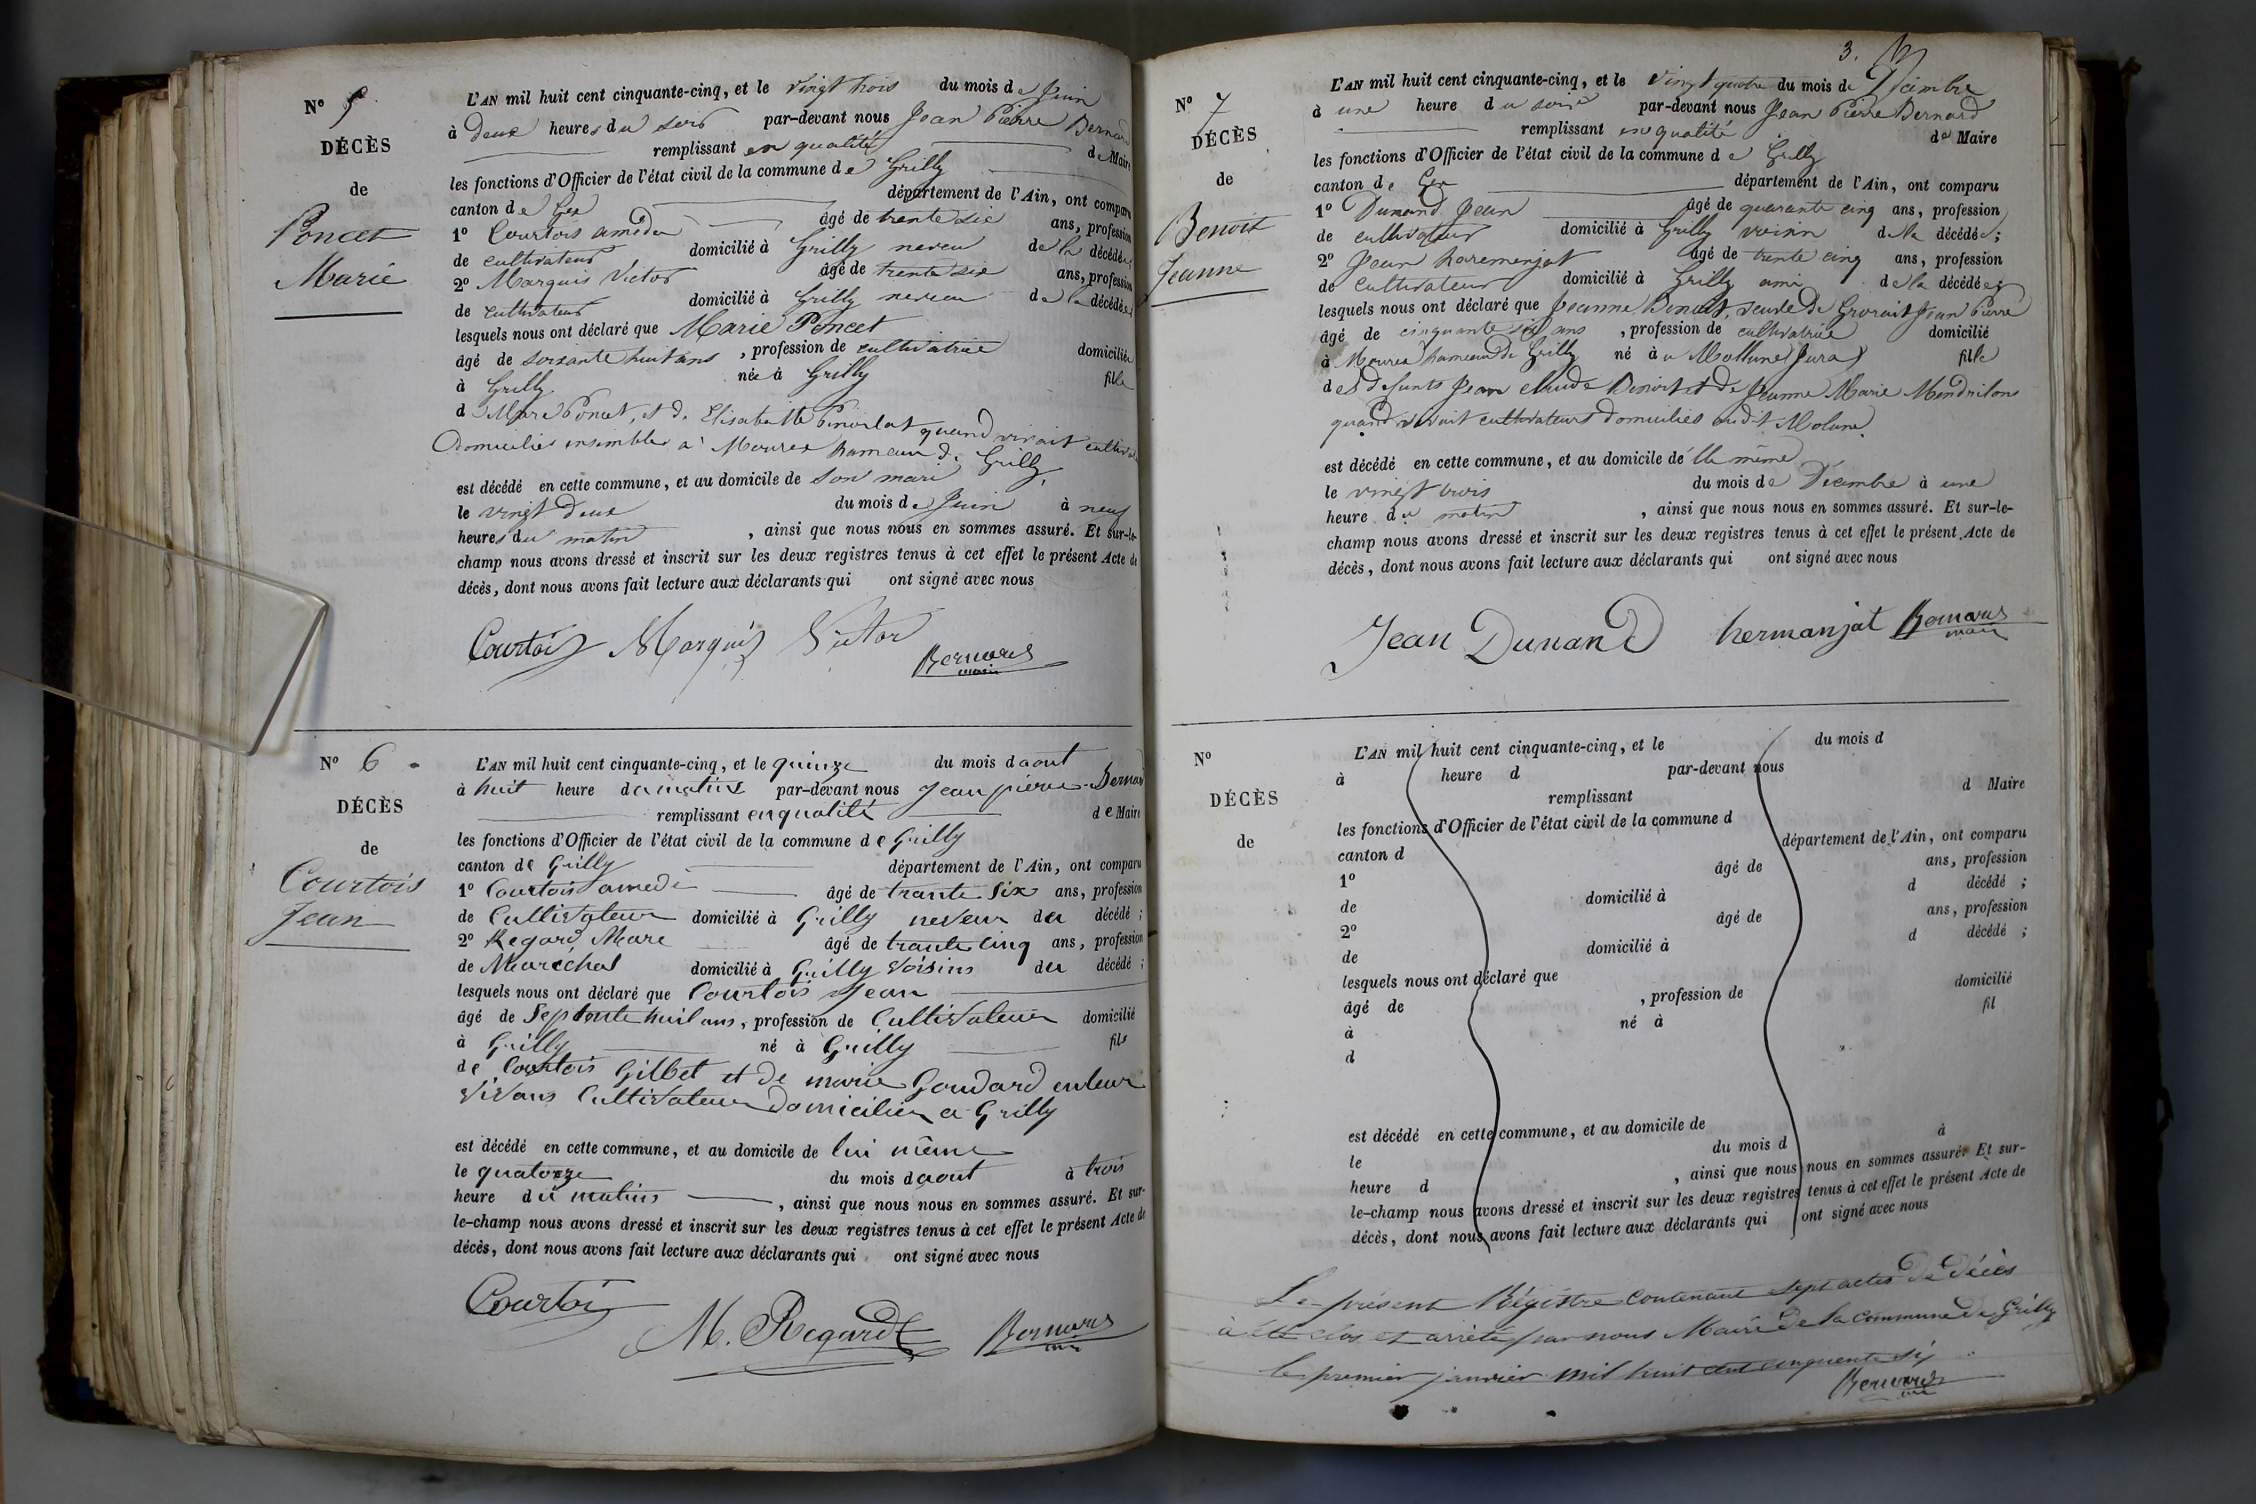 N° 5
DÉCÈS
de
Poncet
Marie
L'AN mil huit cent cinquante-cinq, et le vingt trois du mois de Juin
à deux heures du soir par-devant nous Jean Pierre Bernard
remplissant en qualité de Maire
les fonctions d'Officier de l'état civil de la commune de Grilly
canton de Gex département de l'Ain, ont comparu
1° Courtois amédée âgé de trente six ans, profession
de cultivateur domicilié à Grilly neveu de la décédée;
2° Marquis Victor âgé de trente six ans, profession
de cultivateur domicilié à Grilly neveu de la décédée
lesquels nous ont déclaré que Marie Poncet
âgé de soixante huit ans, profession de cultivatrice domiciliée
à Grilly née à Grilly fille
de Marc Poncet, et de Elisabeth quand vivait
Domiciliés ensembles à Mourex hameau de Grilly,
est décédé en cette commune, et au domicile de son mari
le vingt deux du mois de Juin à neuf
heures du matin, ainsi que nous nous en sommes assuré. Et sur-le-
champ nous avons dressé et inscrit sur les deux registres tenus à cet effet le présent Acte de
décès, dont nous avons fait lecture aux déclarants qui ont signé avec nous
Courtois Marquis Victor
Bernard
maire
N° 6
DÉCÈS
de
Courtois
Jean
L'AN mil huit cent cinquante-cinq, et le quinze du mois daout
à huit heure du matins par-devant nous Jean pierre Bernard
remplissant en qualité de Maire
les fonctions d'Officier de l'état civil de la commune de Grilly
canton de Grilly département de l'Ain, ont comparu
1° Courtois amedé âgé de trante six ans, profession
de Cultivateur domicilié à Grilly neveur du décédé;
2° Regard Marc âgé de trante cinq ans, profession
de Marechal domicilié à Grilly Voisins du décédé;
lesquels nous ont déclaré que Courtois Jean
âgé de Septente huit ans, profession de Cultivateur domicilié
à Grilly né à Grilly fils
de Courtois Gilbet et de marie Goudard enleur
Vivans Cultivateur Domicilier a Grilly
est décédé en cette commune, et au domicile de lui même
le quatorze du mois daout à trois
heure du matins, ainsi que nous nous en sommes assuré. Et sur-
le-champ nous avons dressé et inscrit sur les deux registres tenus à cet effet le présent Acte de
décès, dont nous avons fait lecture aux déclarants qui ont signé avec nous
Courtois
M. Regard
Bernard
3.
N° 7
DÉCÈS
de
Benoit
Jeanne
L'AN mil huit cent cinquante-cinq, et le vingt quatre du mois de Décembre
à une heure du soir par-devant nous Jean Pierre Bernard
remplissant en qualité de Maire
les fonctions d'Officier de l'état civil de la commune de Grilly
canton de Gex département de l'Ain, ont comparu
1° Dunand Jean âgé de quarante cinq ans, profession
de cultivateur domicilié à Grilly voisin de la décédée;
2° Jean haremenjat âgé de trente cinq ans, profession
de Cultivateur domicilié à Grilly ami de la décédée;
lesquels nous ont déclaré que Jeanne Benoit, veuve de Jean Pierre
âgé de cinquante six ans, profession de cultivatrice domicilié
à Mourex hameau de Grilly né à Mollune (Jura) fille
des défunts Jean Claude Benoit et de Jeanne Marie
quand vivait cultivateurs domiciliés audit Molune.
est décédé en cette commune, et au domicile de lle même
le vingt trois du mois de Décembre à une
heure du matin, ainsi que nous nous en sommes assuré. Et sur-le-
champ nous avons dressé et inscrit sur les deux registres tenus à cet effet le présent Acte de
décès, dont nous avons fait lecture aux déclarants qui ont signé avec nous
Jean Dunand hermanjat Bernard
maire
N°
DÉCÈS
de
L'AN mil huit cent cinquante-cinq, et le du mois d
à heure d par-devant nous
remplissant d Maire
les fonctions d'Officier de l'état civil de la commune d
canton d département de l'Ain, ont comparu
1° âgé de ans, profession
de domicilié à d décédé ;
2° âgé de ans, profession
de domicilié à d décédé ;
lesquels nous ont déclaré que
âgé de , profession de domicilié
à né à fil
d
est décédé en cette commune, et au domicile de
le du mois d à
heure d , ainsi que nous nous en sommes assuré. Et sur-
le-champ nous avons dressé et inscrit sur les deux registres tenus à cet effet le présent Acte de
décès, dont nous avons fait lecture aux déclarants qui ont signé avec nous
Le présent Régistre contenant sept actes de décès
à été clos et arrêté par nous Maire de la commune de Grilly
le premier janvier mil huit cent cinquante six
Bernard